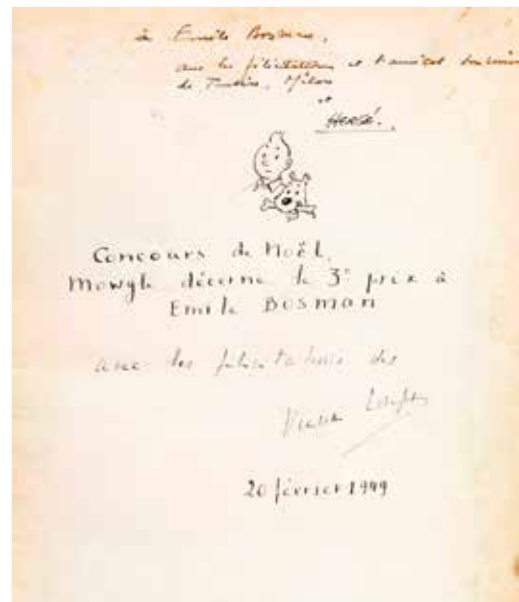 à Emile Bosman,
avec les félicitations et l'amical souvenir
de Tintin, Milou
et
HERGÉ.
Concours de Noël.
Mowgli décerne le 3e prix à
Emile BOSMAN
avec les félicitations des
20 février 1949